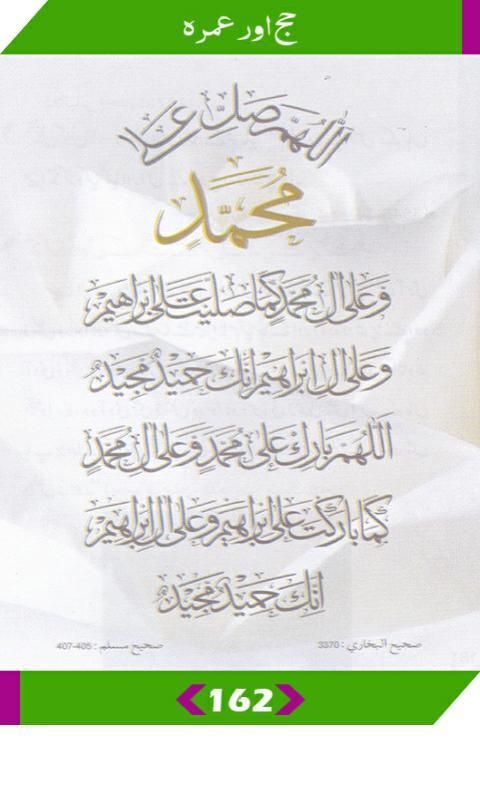 حج اور عمرہ
اللّٰهُمَّ صَلِّ عَلٰى
مُحَمَّدٍ
وَعَلٰى اٰلِ مُحَمَّدٍ كَمَا صَلَّيْتَ عَلٰى اِبْرَاهِيْمَ
وَعَلٰى اٰلِ اِبْرَاهِيْمَ اِنَّكَ حَمِيْدٌ مَّجِيْدٌ
اَللّٰهُمَّ بَارِكْ عَلٰى مُحَمَّدٍ وَّعَلٰى اٰلِ مُحَمَّدٍ
كَمَا بَارَكْتَ عَلٰى اِبْرَاهِيْمَ وَعَلٰى اٰلِ اِبْرَاهِيْمَ
اِنَّكَ حَمِيْدٌ مَّجِيْدٌ
صحيح البخاري : 3370 صحيح مسلم : 405-407
162